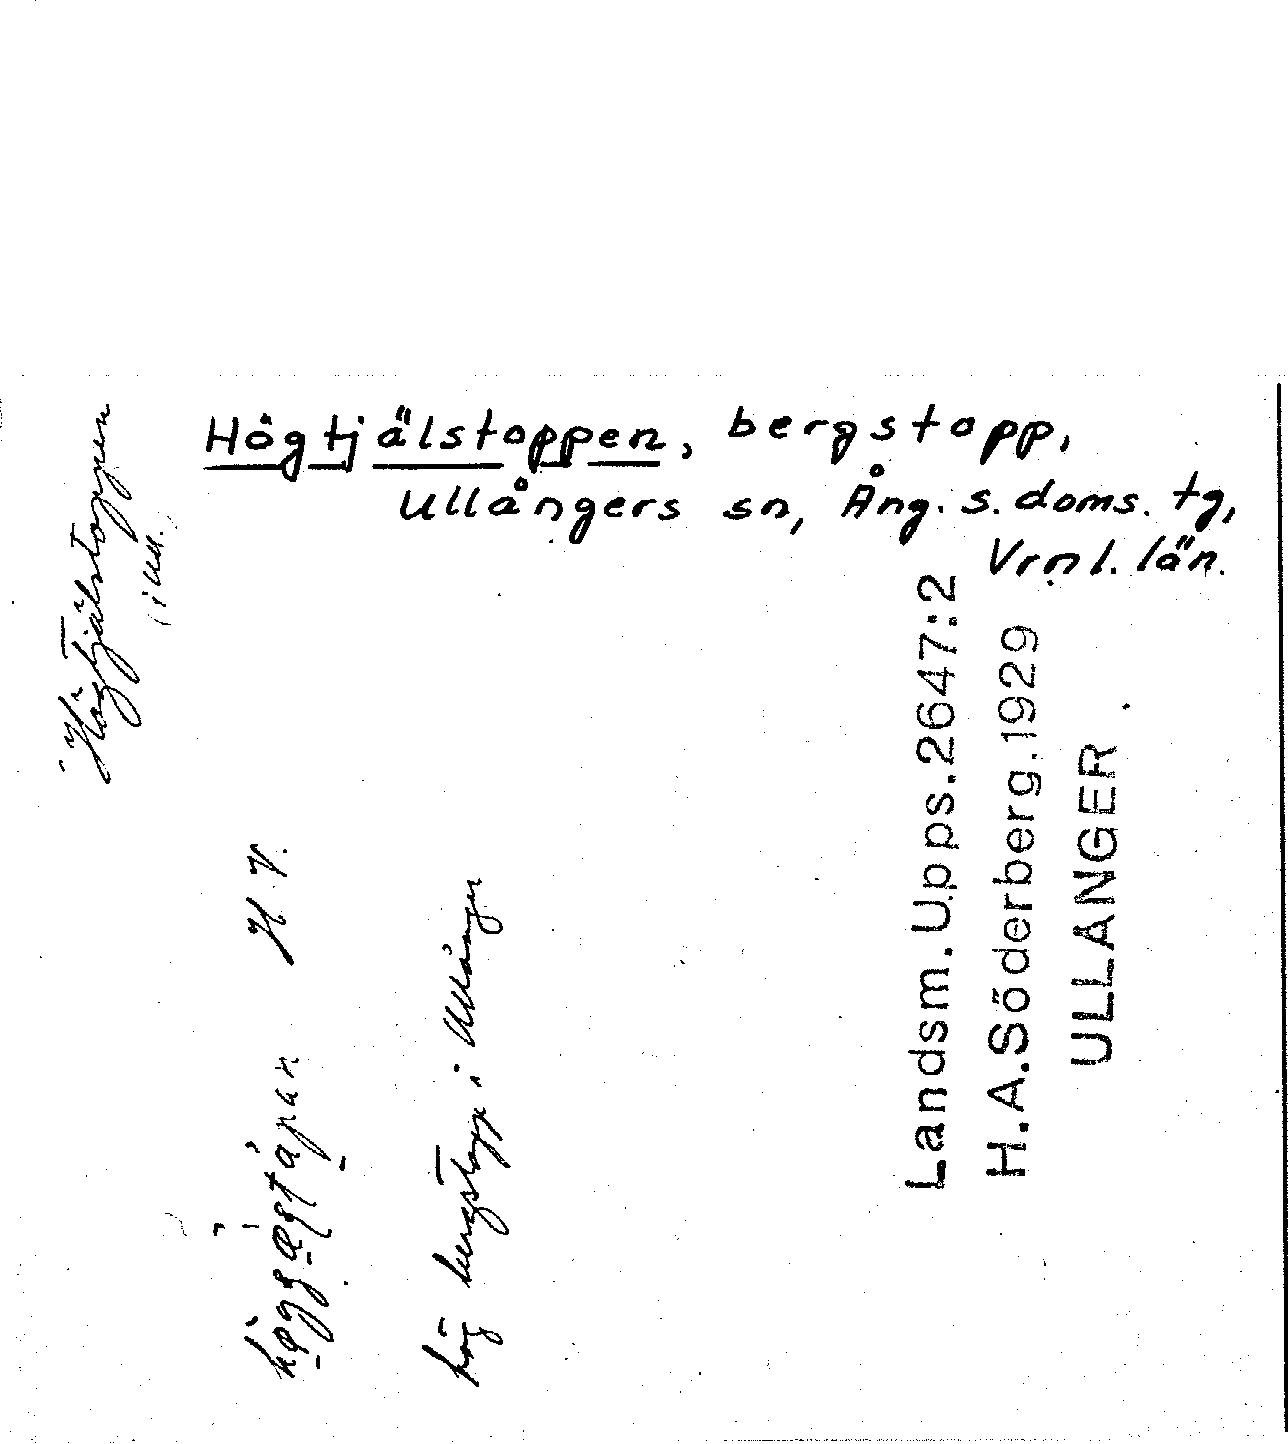 Högtjälstoppen, bergstopp,
Ullångers sn, Ång. s. doms. tg,
Vrnl. län.
Högtjälstoppen
H. V.
hög bergstopp i Ullånger
Landsm. Upps. 2647:2
H.A. Söderberg. 1929
ULLÅNGER